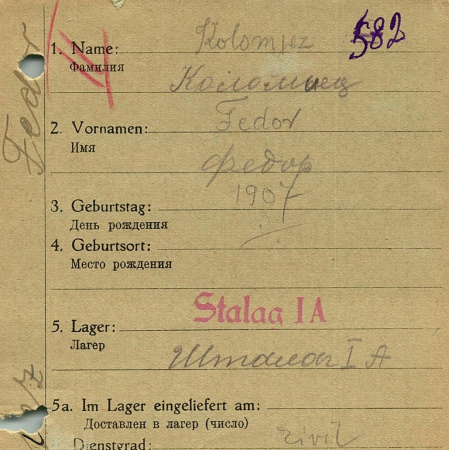 Fedor
582
1. Name: Kolomjez
Фамилия Коломиец
2. Vornamen: Fedor
Имя Федор
3. Geburtstag: 1907
День рождения
4. Geburtsort:
Место рождения
Stalag IA
5. Lager:
Лагер Шталаг I A
5a. Im Lager eingeliefert am:
Доставлен в лагер (число)
Dienstgrad: zivil